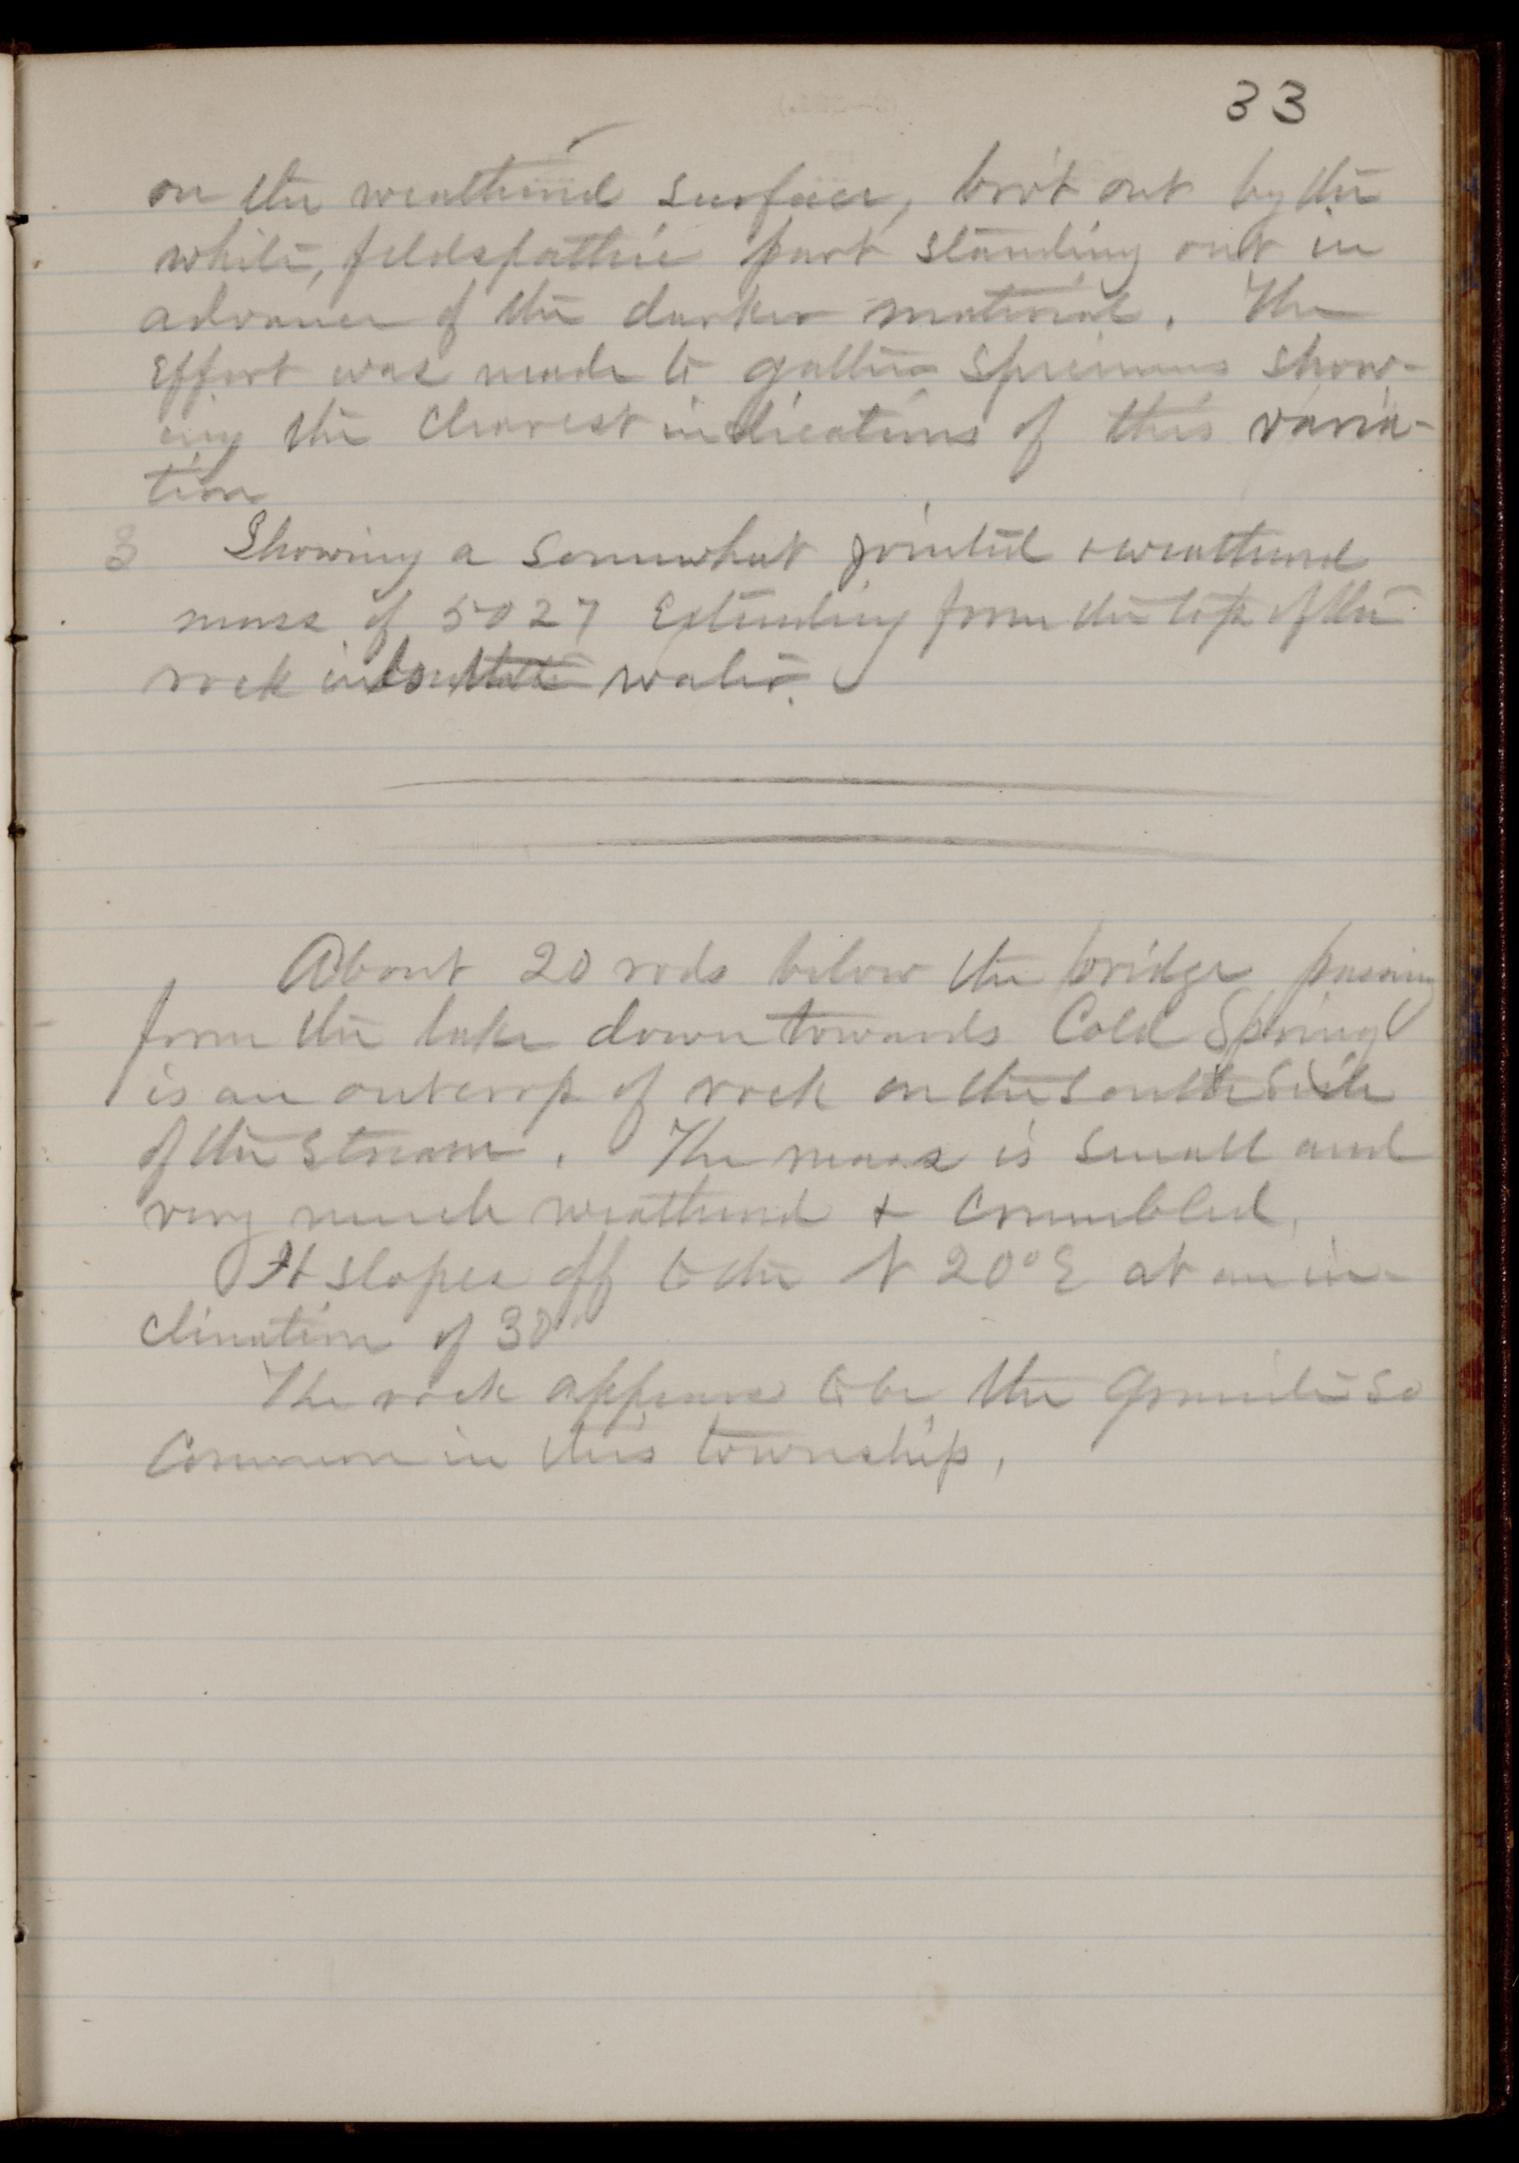 33
on the weathered surface, bro't out by the
white, feldspathic part standing out in
advance of the darker material. The
effort was made to gather specimens show-
ing the clearest indications of this varia-
tion
3 Showing a somewhat jointed & weathered
mass of 5027 Extending from the top of the
rock into the water.
About 20 rods below the bridge passing
from the lake down towards Cold Spring
is an outcrop of rock on the south side
of the stream. The mass is small and
very much weathered & crumbled.
It slopes off to the N 20° E at an in-
clination of 30°
The rock appears to be the granite so
common in this township.